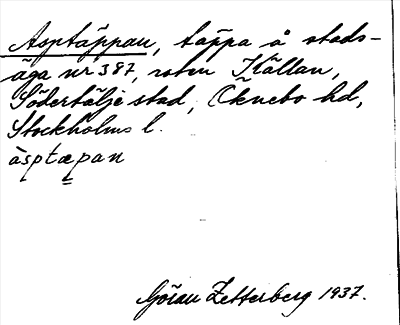 Asptäppan, täppa å stads-
äga nr 387, roten Källan,
Södertälje stad, Öknebo hd,
Stockholms l.
àsptæpan
Göran Zetterberg 1937.